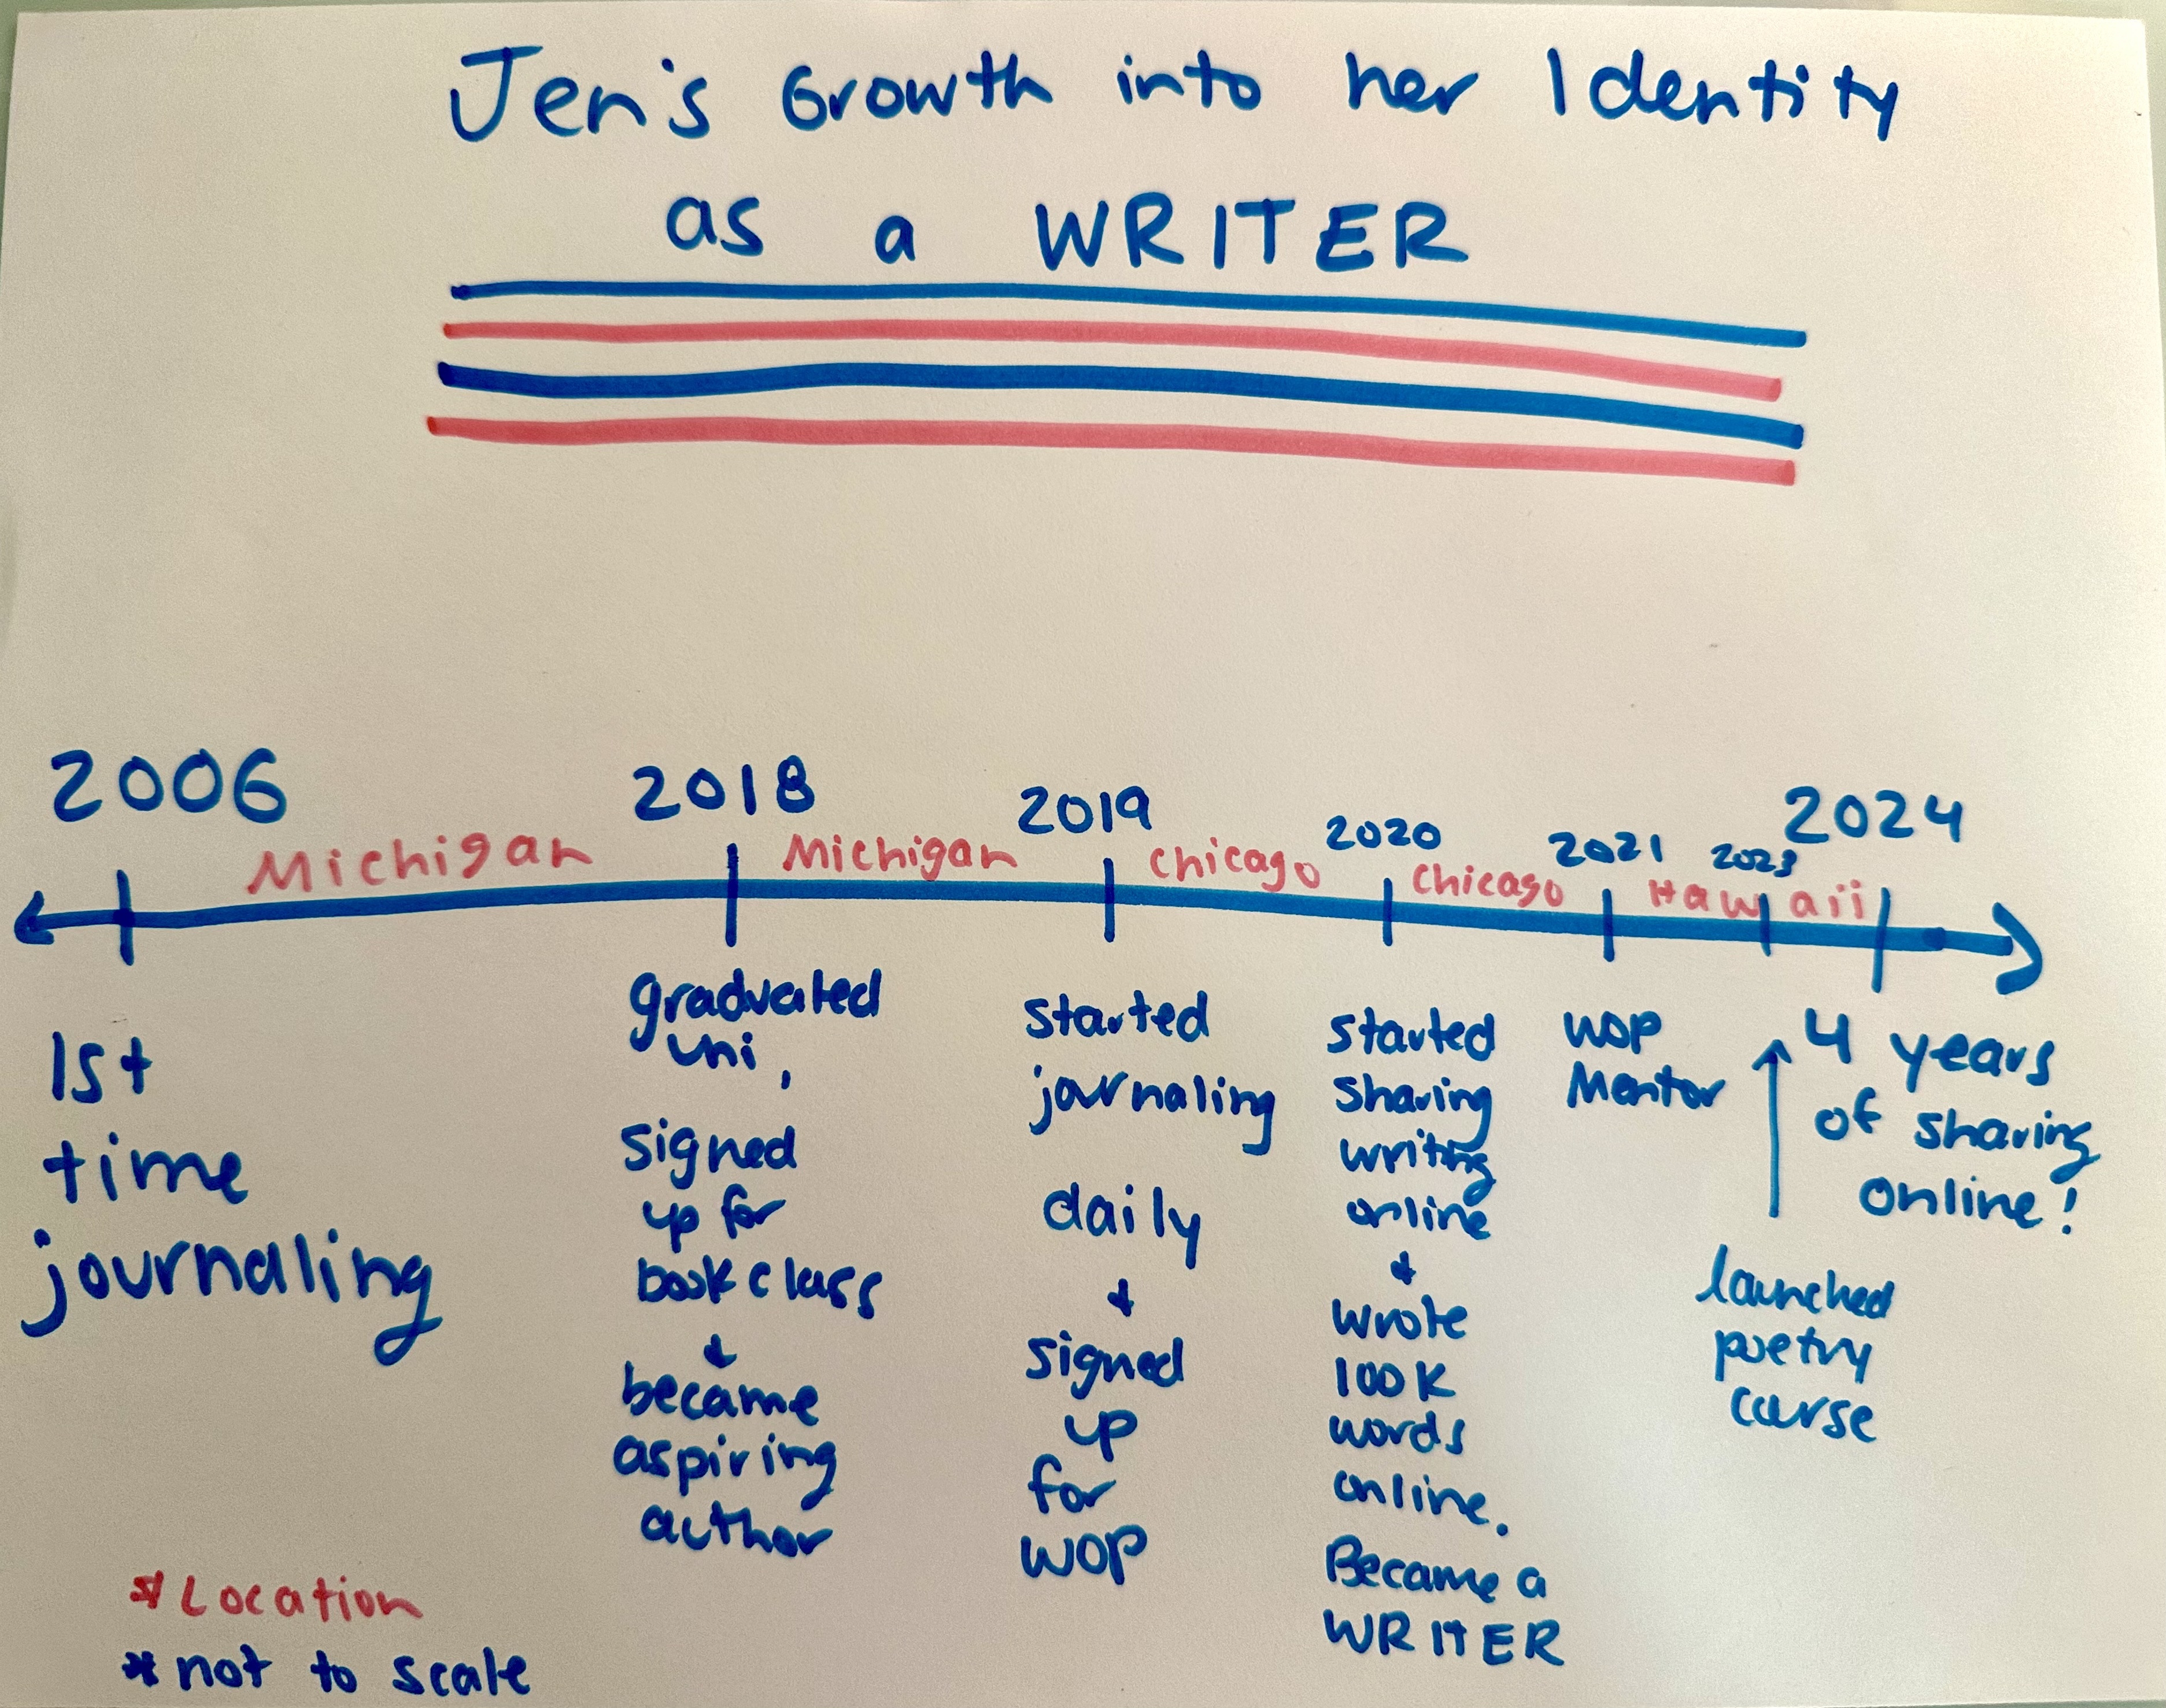 Jen's Growth into her Identity
as a WRITER
2006
2018
2019
2020
2021
2023
2024
Michigan
Michigan
Chicago
Chicago
Hawaii
1st
time
journaling
graduated
uni,
signed
up for
book class
&
became
aspiring
author
started
journaling
daily
&
signed
up
for
WOP
started
sharing
writing
online
&
wrote
100K
words
online.
Became a
WRITER
WOP
Mentor
launched
poetry
course
4 years
of sharing
online!
*Location
*not to scale